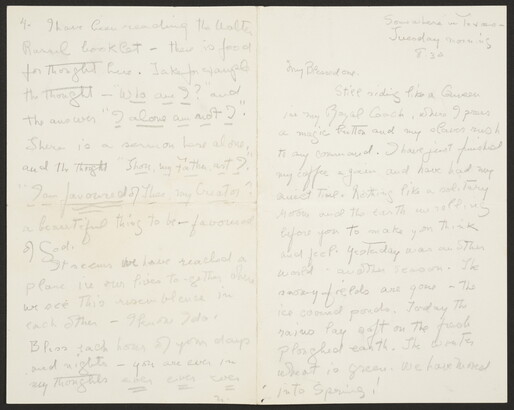 Somewhere in Texas -
Tuesday morning
8.30
My Brandow.
Still riding like a Queen
in my Royal Coach, when I press
a magic button and my slaves rush
to my command. I have just finished
my coffee again and have had my
quiet time. Nothing like a solitary
room and the earth unrolling
before you to make you think
and feel. Yesterday was another
world - another season. The
snowy-fields are gone - the
ice covered ponds. Today the
rains lay soft on the fresh
ploughed earth. The winter
wheat is green. We have moved
into Spring!
4. I have been reading the Walter
Russell booklet - there is food
for thought here. Take for example
the thought - "Who am I?" and
the answer "I alone am not I".
There is a sermon here alone,
and the thought "Thou, my Father, art I".
"I am favoured of Thee my Creator"
a beautiful thing to be - favoured
of God.
It seems we have reached a
place in our lives together where
we see this resemblence in
each other - I know I do.
Bless each hour of your days
and nights - you are ever in
my thoughts ever ever ever